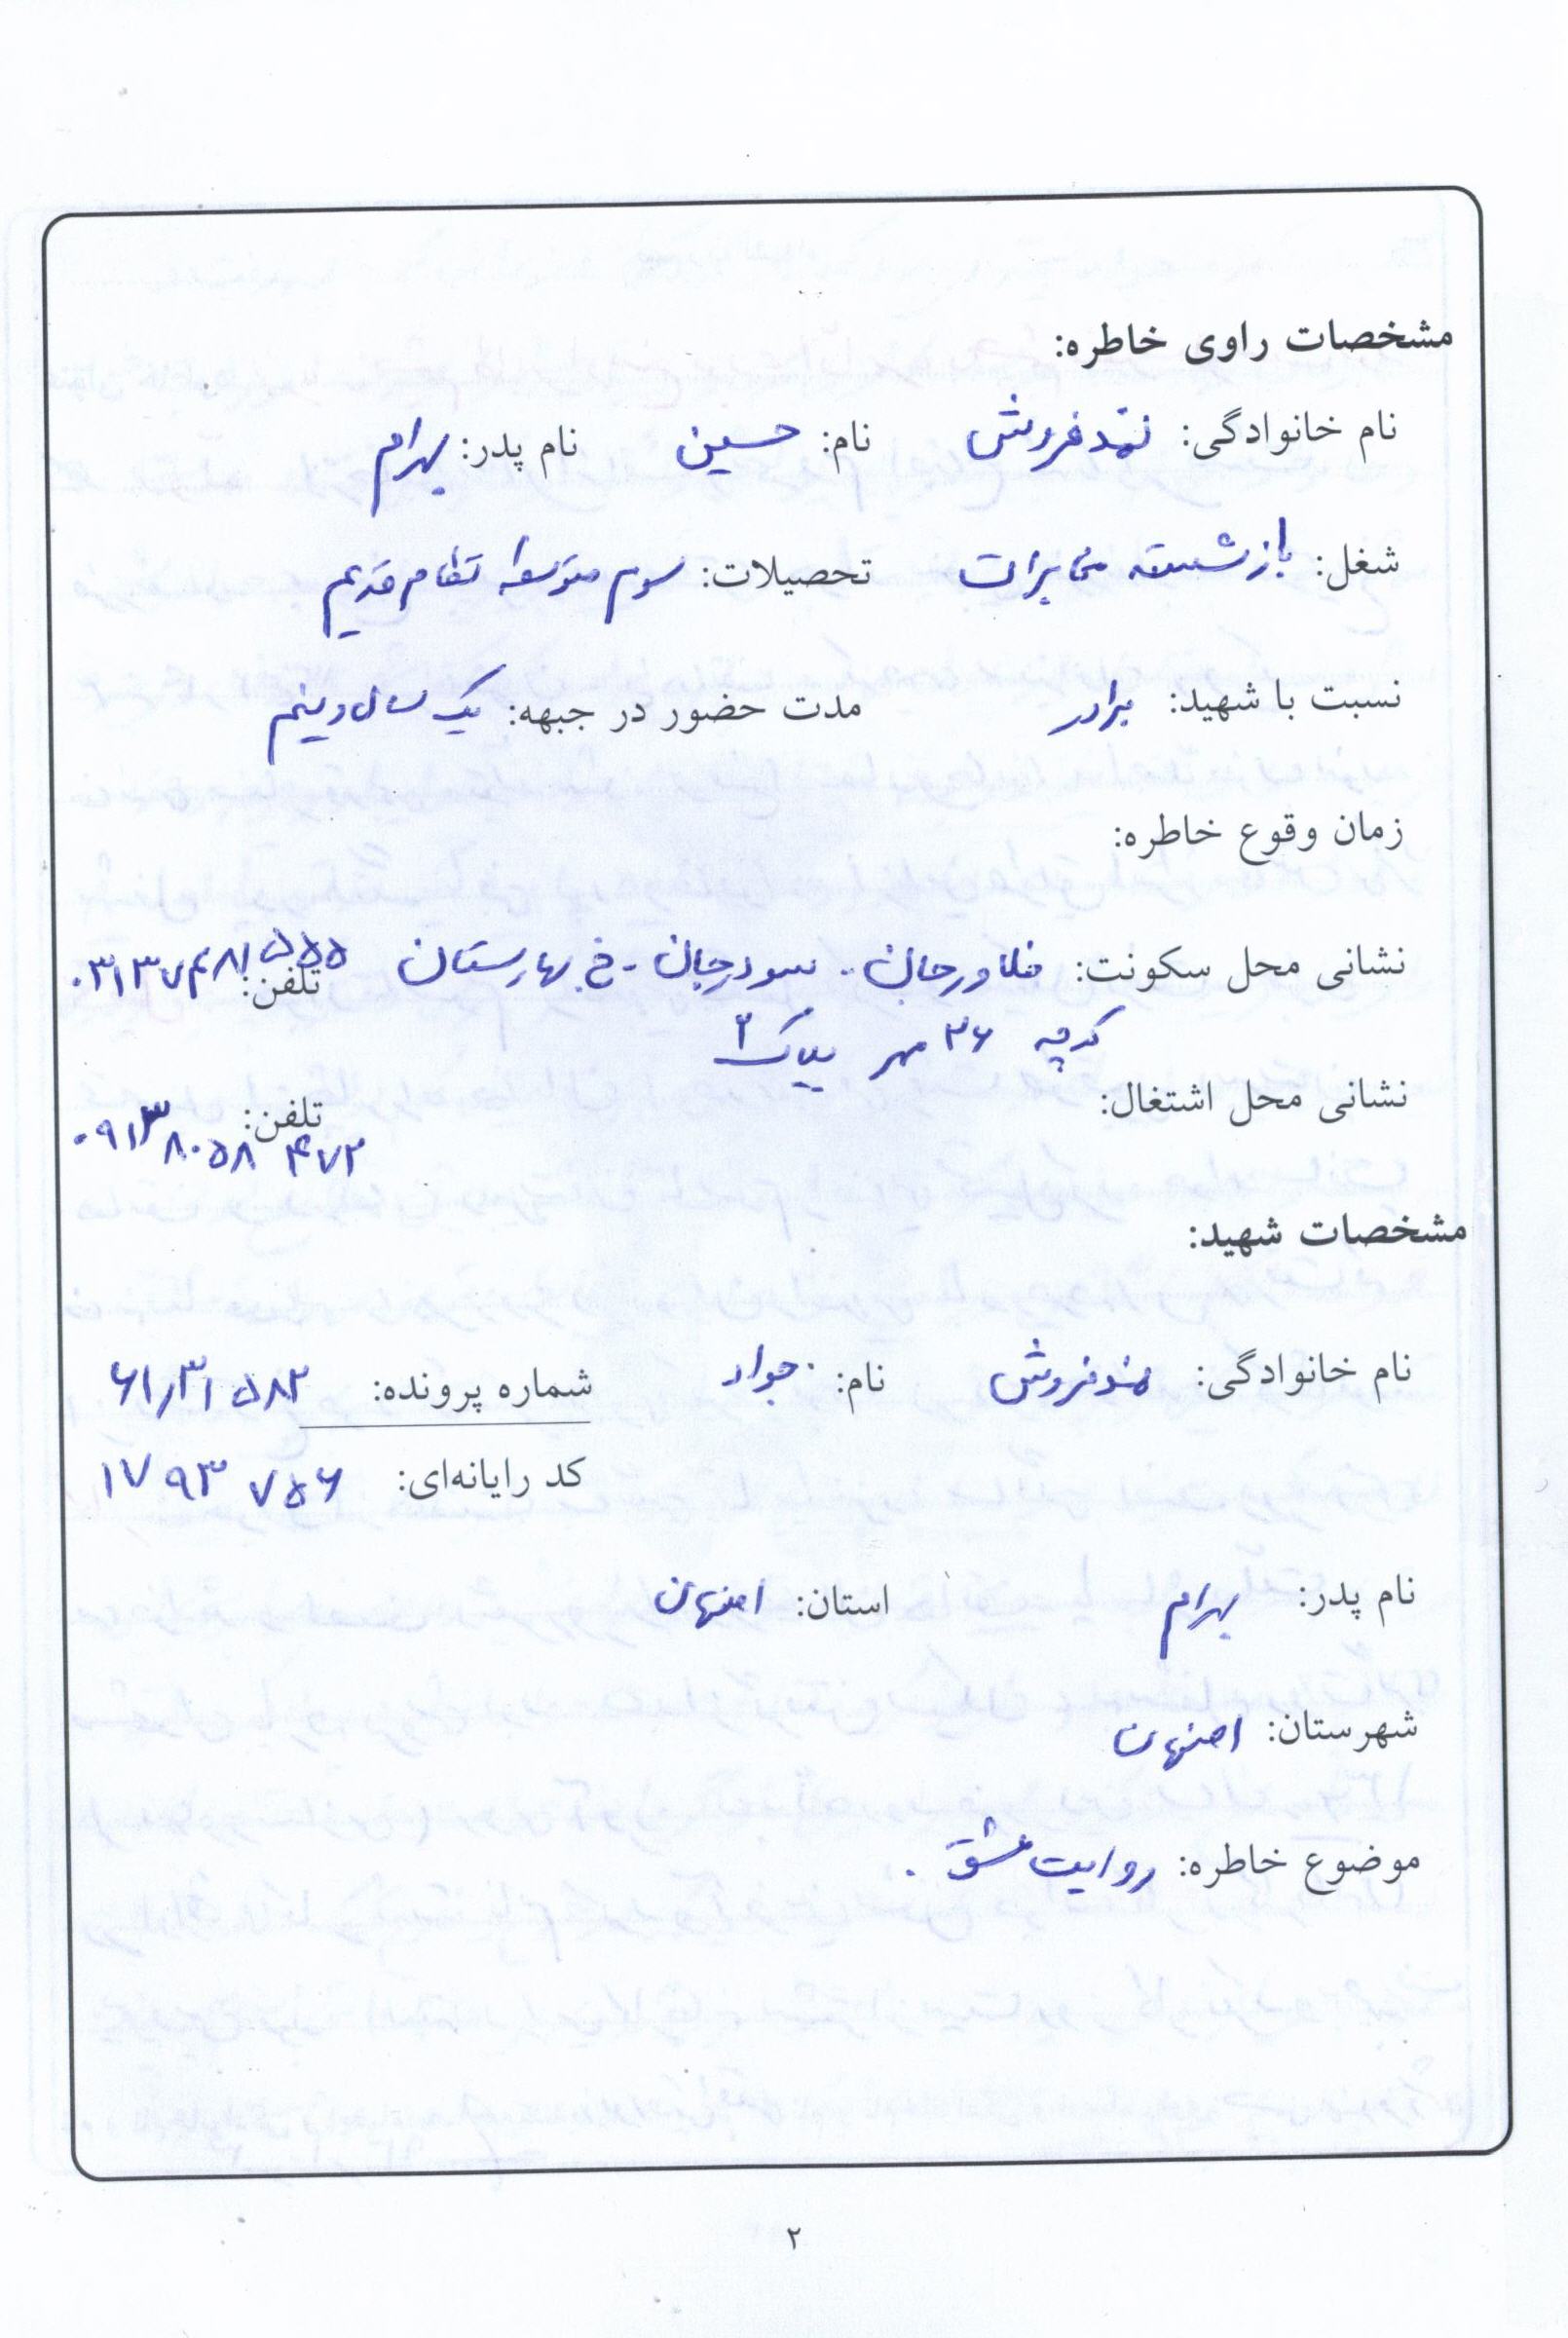 مشخصات راوی خاطره:
نام خانوادگی: نمدفروش نام: حسین نام پدر: بهرام
شغل: بازنشسته مخابرات تحصیلات: سوم متوسطه نظام قدیم
نسبت با شهید: برادر مدت حضور در جبهه: یک سال و نیم
زمان وقوع خاطره:
نشانی محل سکونت: فلاورجان - سودرجان - خ بهارستان تلفن: ۰۳۱۳۷۴۸۱۵۵۵
کوچه ۲۶ مهر پلاک ۲
نشانی محل اشتغال: تلفن: ۰۹۱۳۸۰۵۸۴۷۲
مشخصات شهید:
نام خانوادگی: نمدفروش نام: جواد شماره پرونده: ۶۱/۳۱۵۸۲
کد رایانه‌ای: ۱۷۹۳۷۵۶
نام پدر: بهرام استان: اصفهان
شهرستان: اصفهان
موضوع خاطره: روایت عشق .
۲